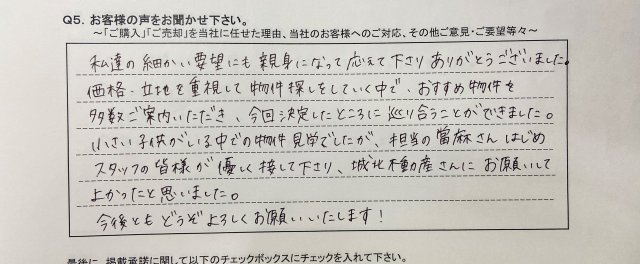 Q5. お客様の声をお聞かせ下さい。
～「ご購入」「ご売却」を当社に任せた理由、当社のお客様へのご対応、その他ご意見・ご要望等々～
私達の細かい要望にも親身になって応えて下さりありがとうございました。
価格・立地を重視して物件探しをしていく中で、おすすめ物件を
多数ご案内いただき、今回決定したところに巡り合うことができました。
小さい子供がいる中での物件見学でしたが、担当の當麻さんはじめ
スタッフの皆様が優しく接して下さり、城北不動産さんにお願いして
よかったと思いました。
今後ともどうぞよろしくお願いいたします！
最後に、掲載承諾に関して以下のチェックボックスにチェックを入れて下さい。